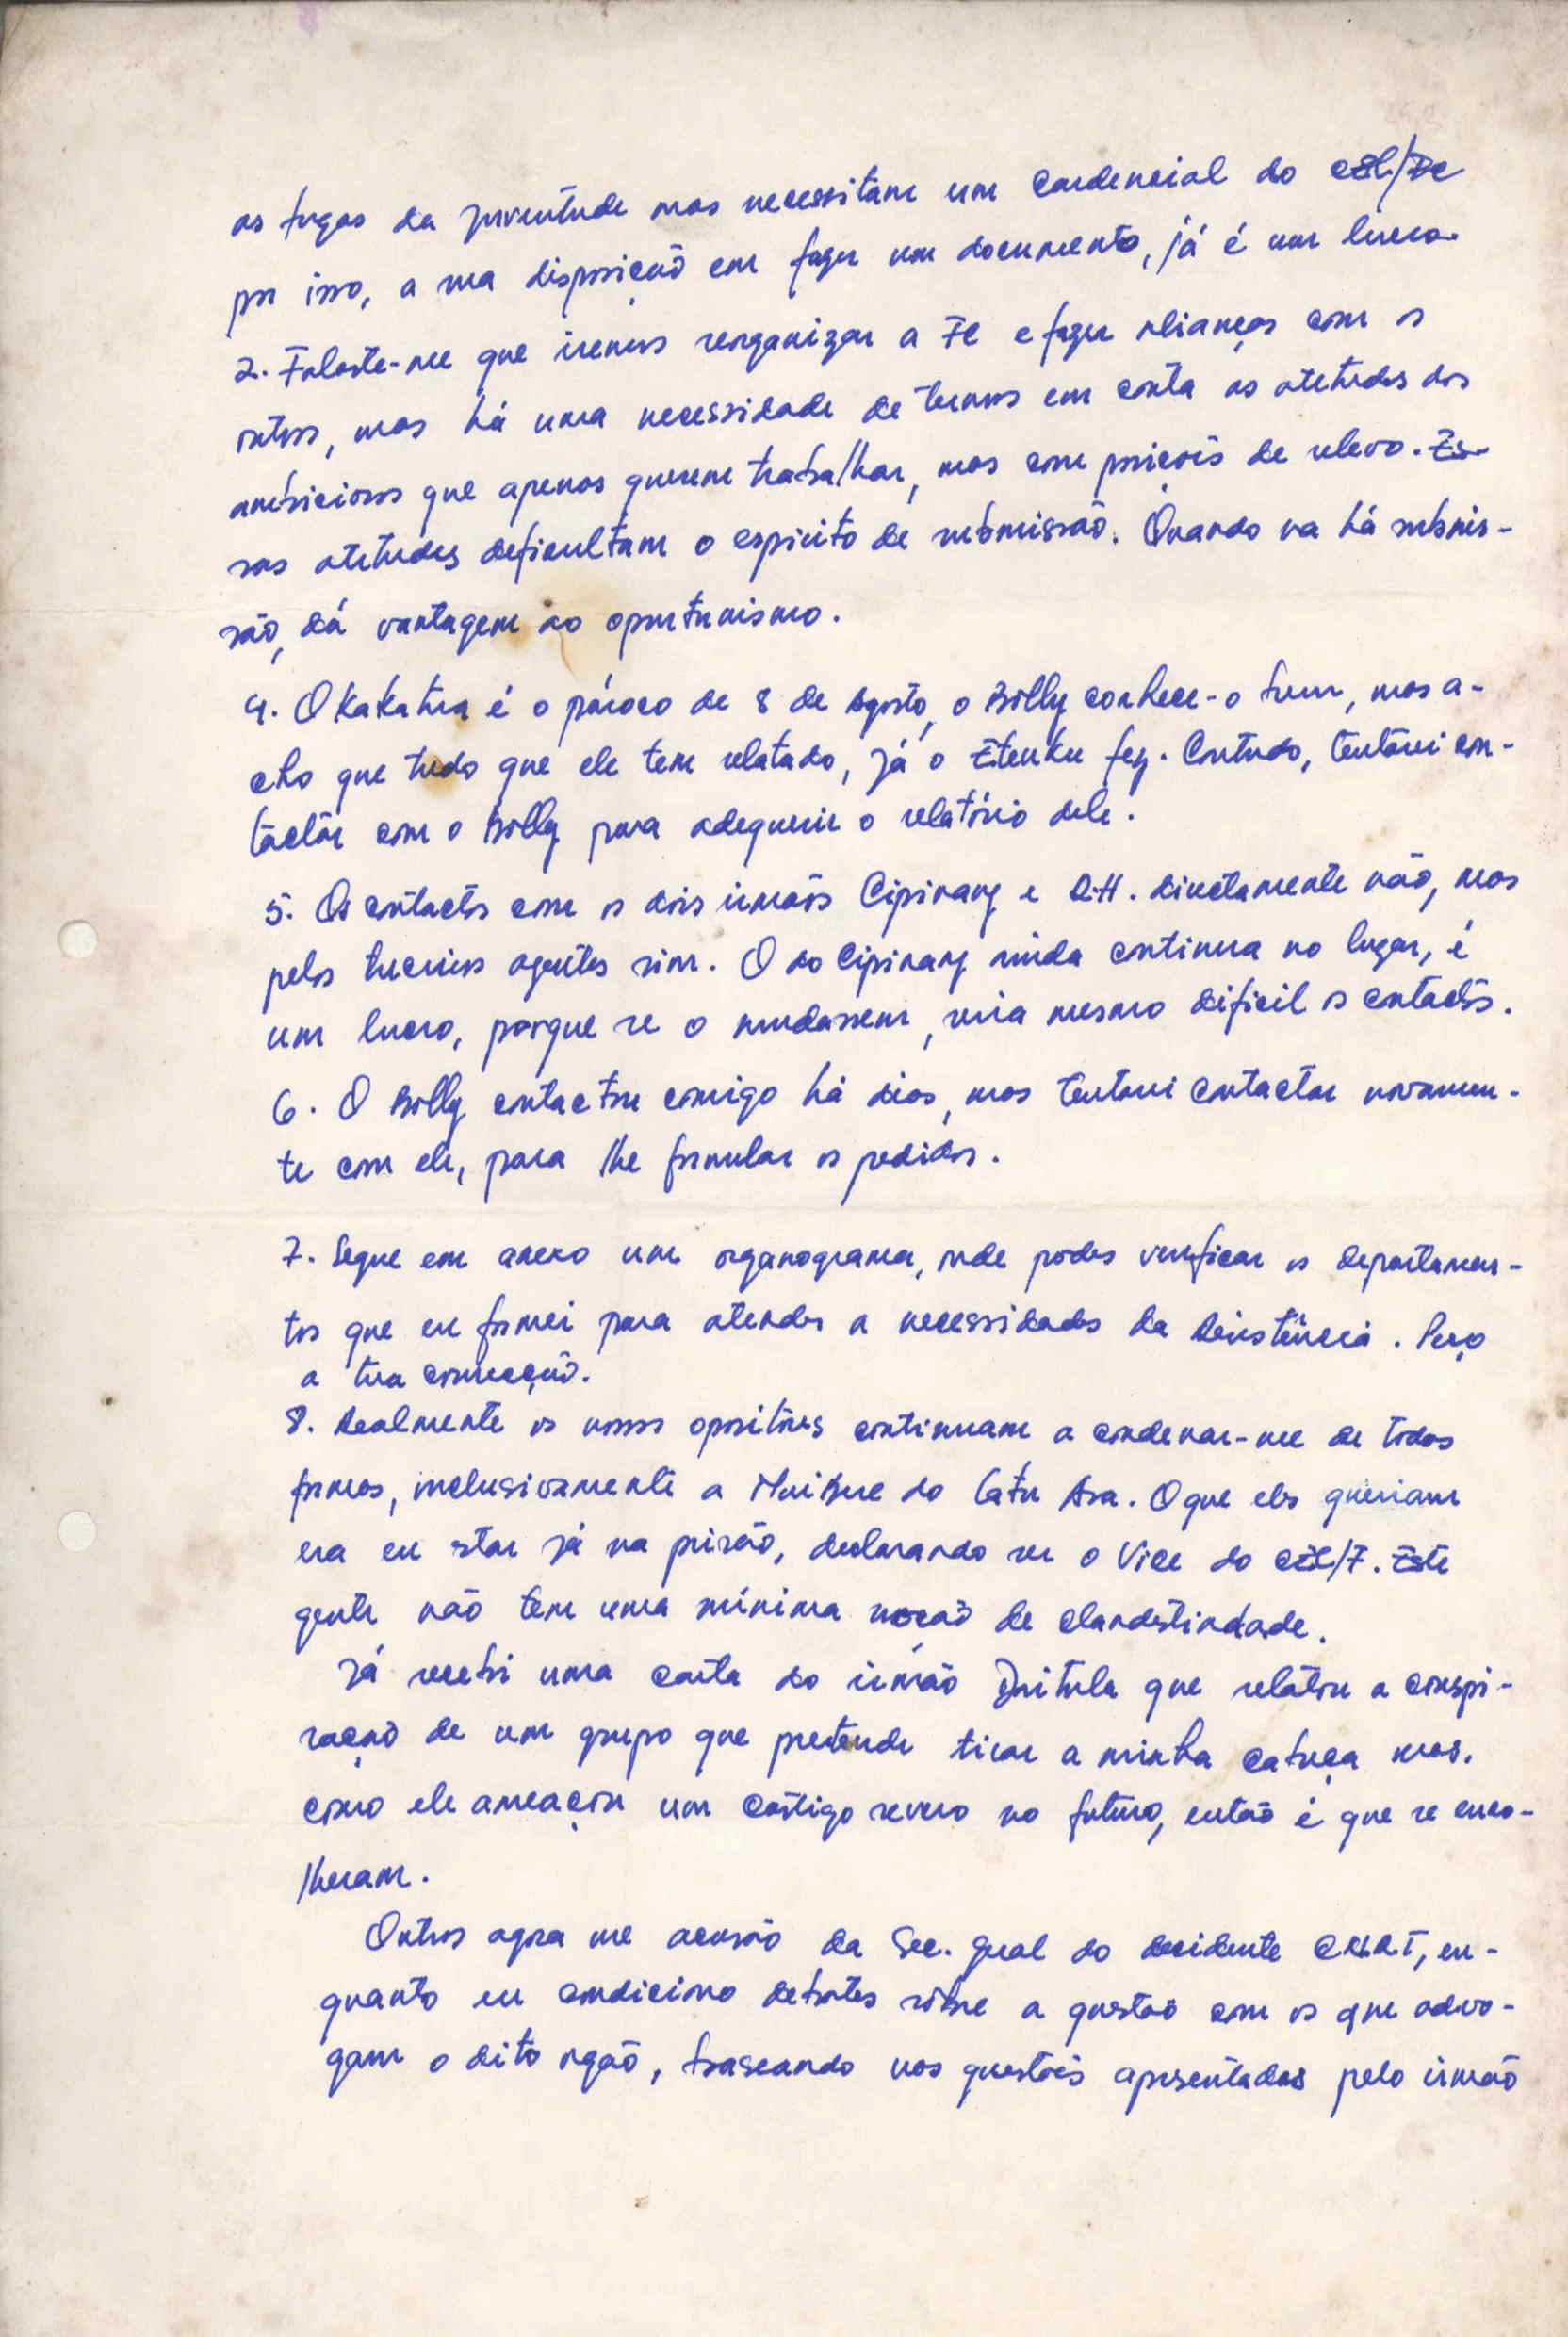 as fugas da juventude mas necessitam um credencial do CEL/FC
por isso, a sua disposição em fazer um documento, já é um lucro.
2. Falaste-me que iremos reorganizar a FC e fazer alianças com os
outros, mas há uma necessidade de termos em conta as atetudes dos
ambiciosos que apenas querem trabalhar, mas com posições de relevo. Es-
sas atetudes deficultam o espirito de submissão. Quando na há submis-
são, dá vantagem ao oportunismo.
4. O Kakatua é o pároco de 8 de Agosto, o Billy conhece-o bem, mas a-
cho que tudo que ele tem relatado, já o Eteuku fez. Contudo, tentarei con-
tactar com o Billy para adequerir o relatório dele.
5. Os contactos com os dois irmãos Cipinang e R.H. directamente não, mas
pelos terceiros agentes sim. O do Cipinang ainda continua no lugar, é
um lucro, porque se o mudassem, seria mesmo dificil os contactos.
6. O Billy contactou comigo há dias, mas tentarei contactar novamen-
te com ele, para lhe formular os pedidos.
7. Segue em anexo um organograma, onde podes verificar os departamen-
tos que eu formei para atender a necessidades da Resistência. Peço
a tua correcção.
8. Realmente os nossos opositores continuam a condenar-me de todas
formas, inclusivamente a Mui Bure do Catu Asa. O que eles queriam
era eu star já na prisão, declarando ser o Vice do CEL/F. Este
gente não tem uma mínima noção de clandestindade.
Já recebi uma carta do irmão Daitula que relatou a conspi-
ração de um grupo que pretende tirar a minha cabeça mas.
como ele ameaçou um castigo severo no futuro, então é que se enco-
lheram.
Outros agora me acusão da Sec. Geral do decidente C.N.R.T, en-
quanto eu condiciono debates sobre a questão com os que advo-
gam o dito orgão, baseando nas questões apresentadas pelo irmão